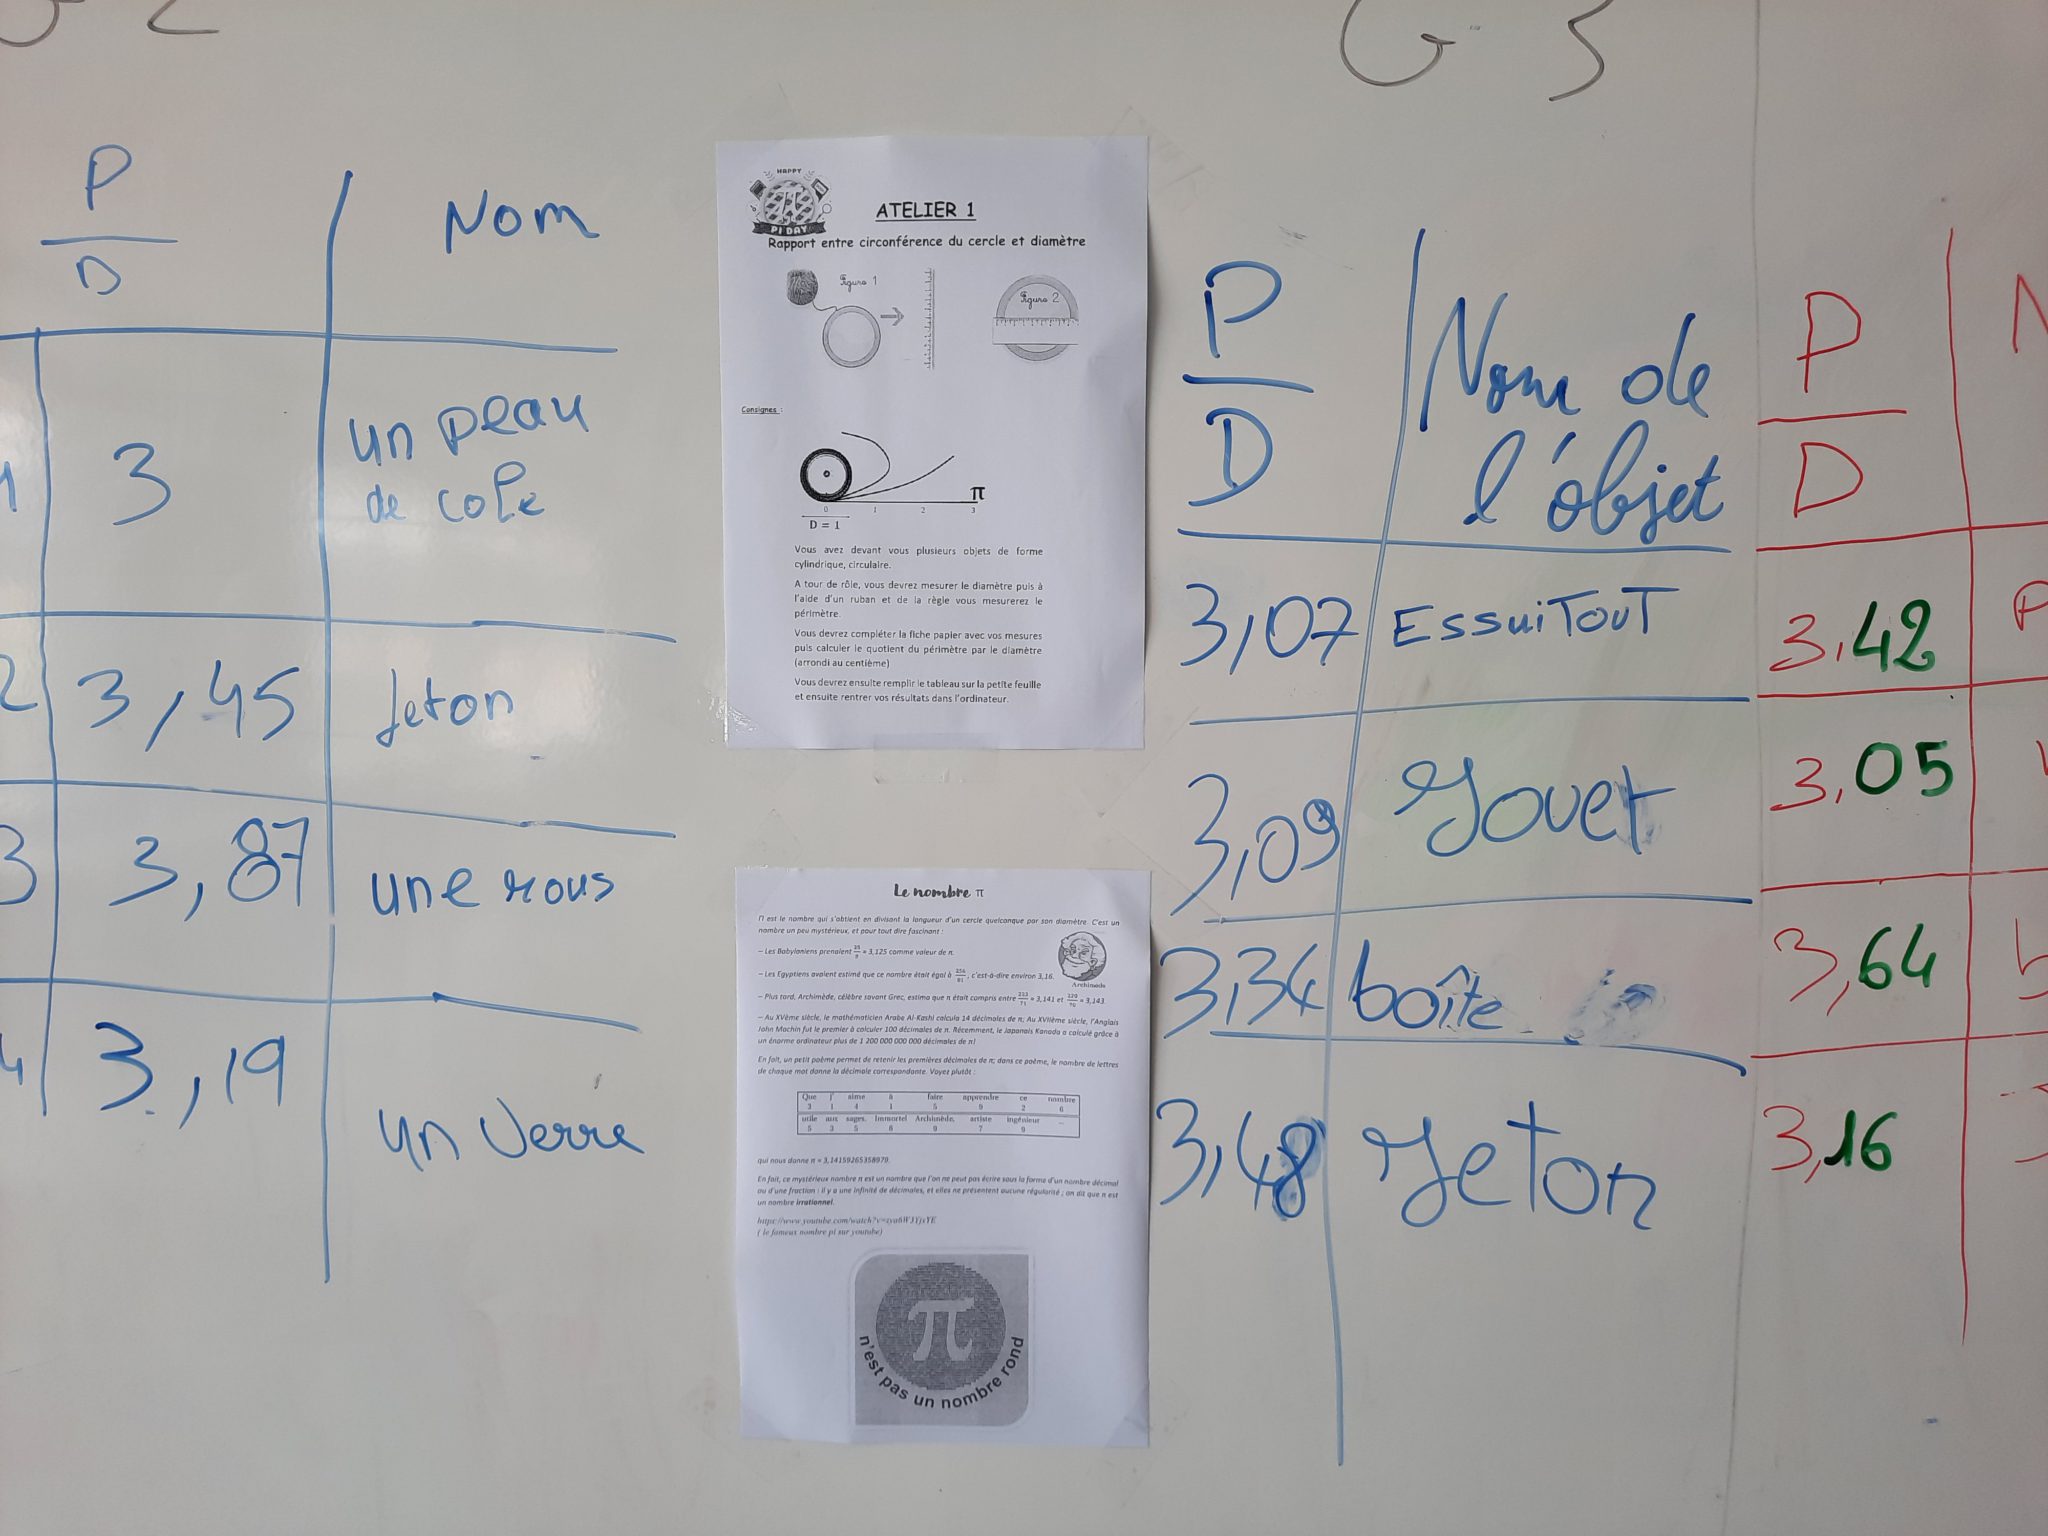 G 2
P
D
Nom
1
3
un peau
de cole
2
3,45
Jeton
3
3,87
une rous
4
3,19
un verre
HAPPY
PI DAY
ATELIER 1
Rapport entre circonférence du cercle et diamètre
Figure 1
Figure 2
Consignes :
π
0 1 2 3
D = 1
Vous avez devant vous plusieurs objets de forme
cylindrique, circulaire.
A tour de rôle, vous devrez mesurer le diamètre puis à
l'aide d'un ruban et de la règle vous mesurerez le
périmètre.
Vous devrez compléter la fiche papier avec vos mesures
puis calculer le quotient du périmètre par le diamètre
(arrondi au centième)
Vous devrez ensuite remplir le tableau sur la petite feuille
et ensuite rentrer vos résultats dans l'ordinateur.
Le nombre π
Π est le nombre qui s'obtient en divisant la longueur d'un cercle quelconque par son diamètre. C'est un
nombre un peu mystérieux, et pour tout dire fascinant :
– Les Babyloniens prenaient 25/8 = 3,125 comme valeur de π.
– Les Egyptiens avaient estimé que ce nombre était égal à 256/81, c'est-à-dire environ 3,16.
Archimède
– Plus tard, Archimède, célèbre savant Grec, estima que π était compris entre 223/71 ≈ 3,141 et 220/70 ≈ 3,143.
– Au XVème siècle, le mathématicien Arabe Al-Kashi calcula 14 décimales de π; Au XVIIème siècle, l'Anglais
John Machin fut le premier à calculer 100 décimales de π. Récemment, le japonais Kanada a calculé grâce à
un énorme ordinateur plus de 1 200 000 000 000 décimales de π!
En fait, un petit poème permet de retenir les premières décimales de π; dans ce poème, le nombre de lettres
de chaque mot donne la décimale correspondante. Voyez plutôt :
Que j' aime à faire apprendre ce nombre
3 1 4 1 5 9 2 6
utile aux sages. Immortel Archimède, artiste ingénieur ...
5 3 5 8 9 7 9
qui nous donne π ≈ 3,14159265358979.
En fait, ce mystérieux nombre π est un nombre que l'on ne peut pas écrire sous la forme d'un nombre décimal
ou d'une fraction : il y a une infinité de décimales, et elles ne présentent aucune régularité ; on dit que π est
un nombre irrationnel.
( le fameux nombre pi sur youtube)
π
n'est pas un nombre rond
G 3
P
D
Nom de
l'objet
3,07
EssuiTouT
3,09
Jouet
3,34
boîte
3,48
Jeton
P
D
N
3,42
P
3,05
3,64
3,16